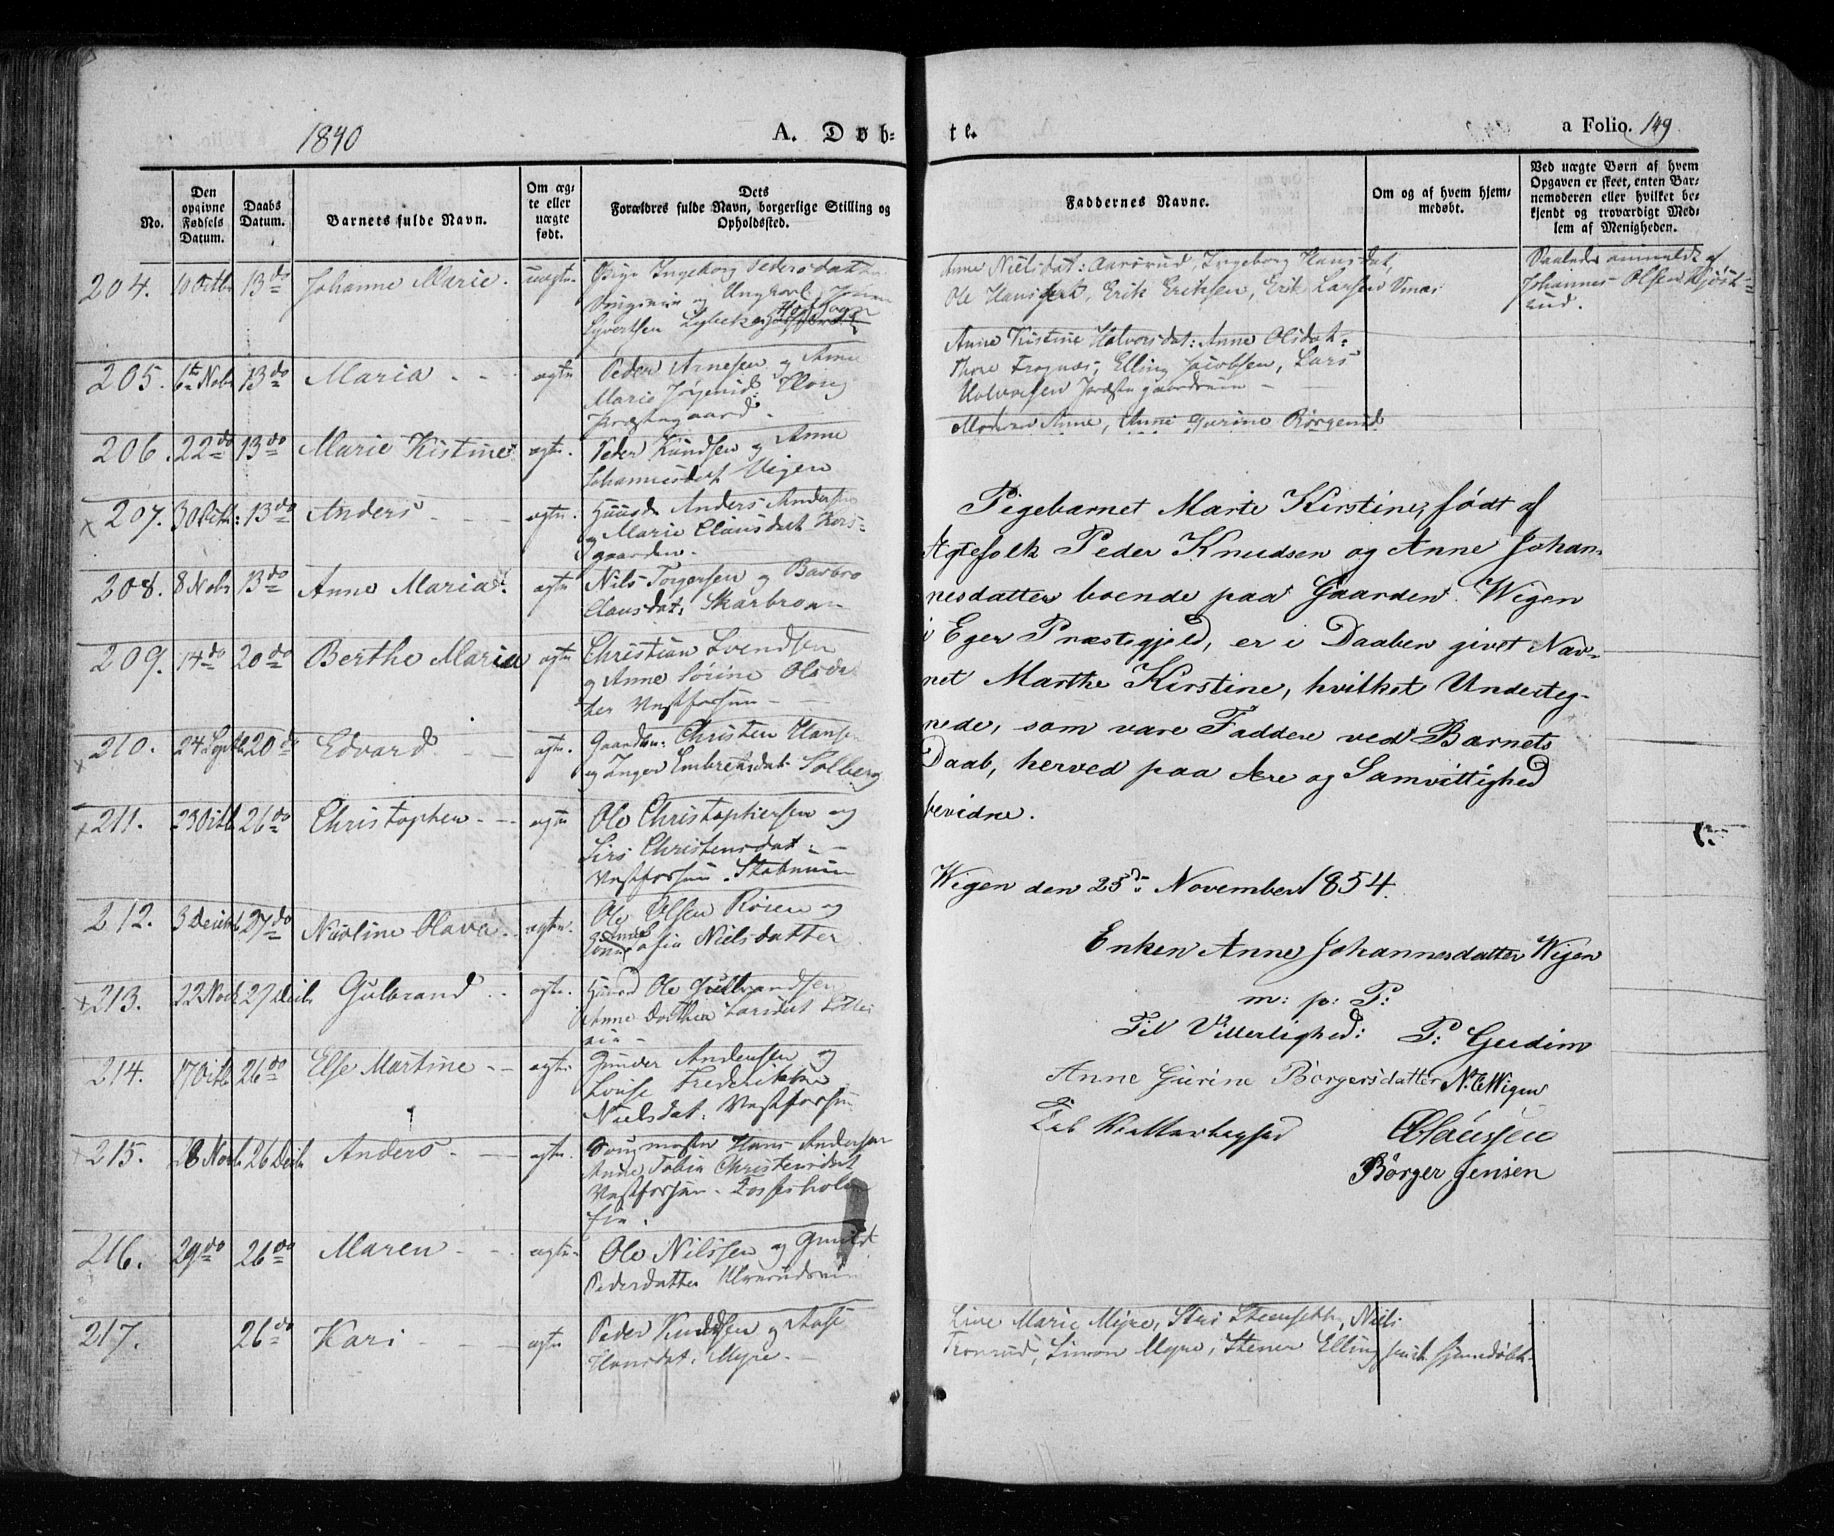 1840
A. Døb-
te.
a Folio. 149
No.
Den opgivne Fødsels Datum.
Daabs Datum.
Barnets fulde Navn.
Om ægte eller uægte født.
Dets Forældres fulde Navn, borgerlige Stilling og Opholdssted.
Faddernes Navne.
Om og af hvem hjemmedøbt.
Ved uægte Børn af hvem Opgaven er skeet, enten Barnemoderen eller hvilket bekjendt og troværdigt Medlem af Menigheden.
204. 10 Octbr 13do Johanne Marie. uægte. Pige Ingeborg Pedersdatter
og Ungkarl Johan
Syvertsen
Anne Nielsdat: Aarsrud, Ingeborg Hansdat,
Ole Hans Erik Eriksen, Erik Larsen Vinæs
anmeldt af
Johannes Olsen
rud.
205. 6te Nobr 13do Maria ægte Peder Arnesen og Anne
Marie Jørgensd: Houg
Præstegaard.
Anne Kistine Halvorsdat: Anne Olsdat:
Thore Frognæs, Elling Jacobsen, Lars
Halvorsen Præstegaardseie
206. 22do 13do Marie Kistine ægte. Peder Knudsen og Anne
Johannesdat Vigen
Moderen Anne, Anne Gurine Børgersd
207. 30 Octbr: 13do Anders ægte. Huusm Anders Andersen
og Marie Clausdat Kors-
gaarden.
208. 8 Nobr 13do Anne Maria ægte Nils Torgersen og Barbro
Clausdat: Skarbroen
209. 14do 20do Berthe Maria ægte Christian Svendsen
og Anne Sørine Olsdat
ter Vestfossen
210. 24 Septbr 20do Edvard ægte. Gaardm: Christen Hansen
og Inger Embretsdat: Solberg
211. 23 Octb 26do Christopher ægte Ole Christophersen og
Siri Christensdat:
Vestfossen.
212. 3 Decbr 27do Nicoline Olava ægte. Ole Olsen Rosen og
Sofia Nielsdatter
213. 22 Novb 27 Decbr Gulbrand ægte. Huusm Ole Gulbrandsen
Anne Dorthea Larsdat
eie
214. 17 Octb 26do Else Martine ægte. Gunder Andersen og
Louise Frederikke
Nielsdat: Vestfossen
215. 18 Novb 26 Decbr Anders ægte. Saugmester Hans Andersen
Anne Tobia Christensdat
Vestfossen. Fossesholm
eie.
216. 29do 26do Maren ægte Ole Nilssen og Gunild
Pedersdatter Ulverudseie
217. 26do Kari ægte Peder Knudsen og Aase
Hansdat: Myre.
Pigebarnet Marte Kirstine, født af
Ægtefolk Peder Knudsen og Anne Johan-
nesdatter boende paa Gaarden Wigen
i Eger Præstegjeld, er i Daaben givet Nav-
net Marthe Kirstine, hvilket Underteg-
nede, som vare Faddere ved Barnets
Daab, herved paa Ære og Samvittighed
bevidne.
Wigen den 23de November 1854.
Enken Anne Johannesdatter Wigen
m: p: P:
Til Vitterlighed: P: Gudim
Anne Gurine Børgersdatter N.E Wigen
Til Vitterlighed Claussen
Børger Jensen
Live Marie Myre, Siri Steensæth, Niels
Tronrud, Simon Myre, Stener Ellingsen hjemdøbt.